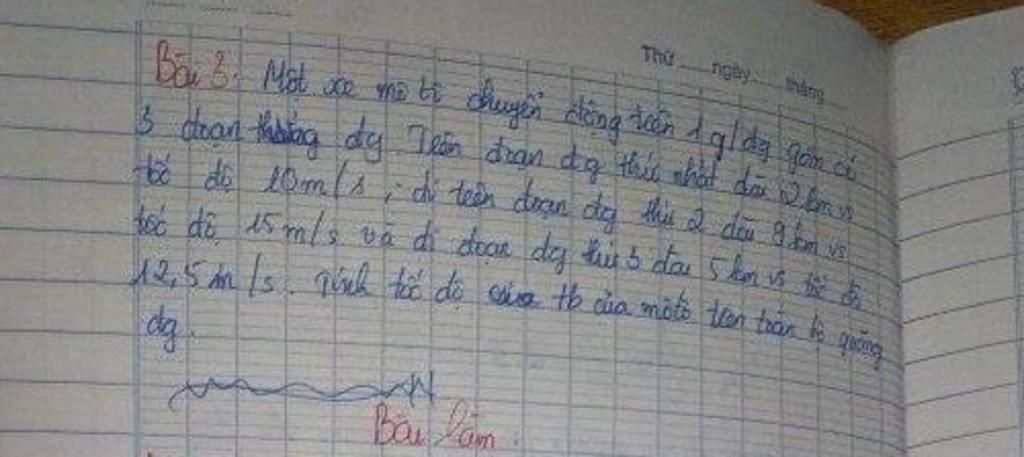 Thứ ngày tháng
Bài 3: Một xe mô tô chuyển động trên 1 q/đg gồm có
3 đoạn đg Trên đoạn đg thứ nhất dài 2 km vs
tốc độ 10m/s, đi trên đoạn đg thứ 2 dài 9 km vs
tốc độ 15m/s và đi đoạn đg thứ 3 dài 5 km vs tốc độ
12,5m/s. Tính tốc độ tb của môtô trên toàn bộ quãng
đg.
Bài làm.